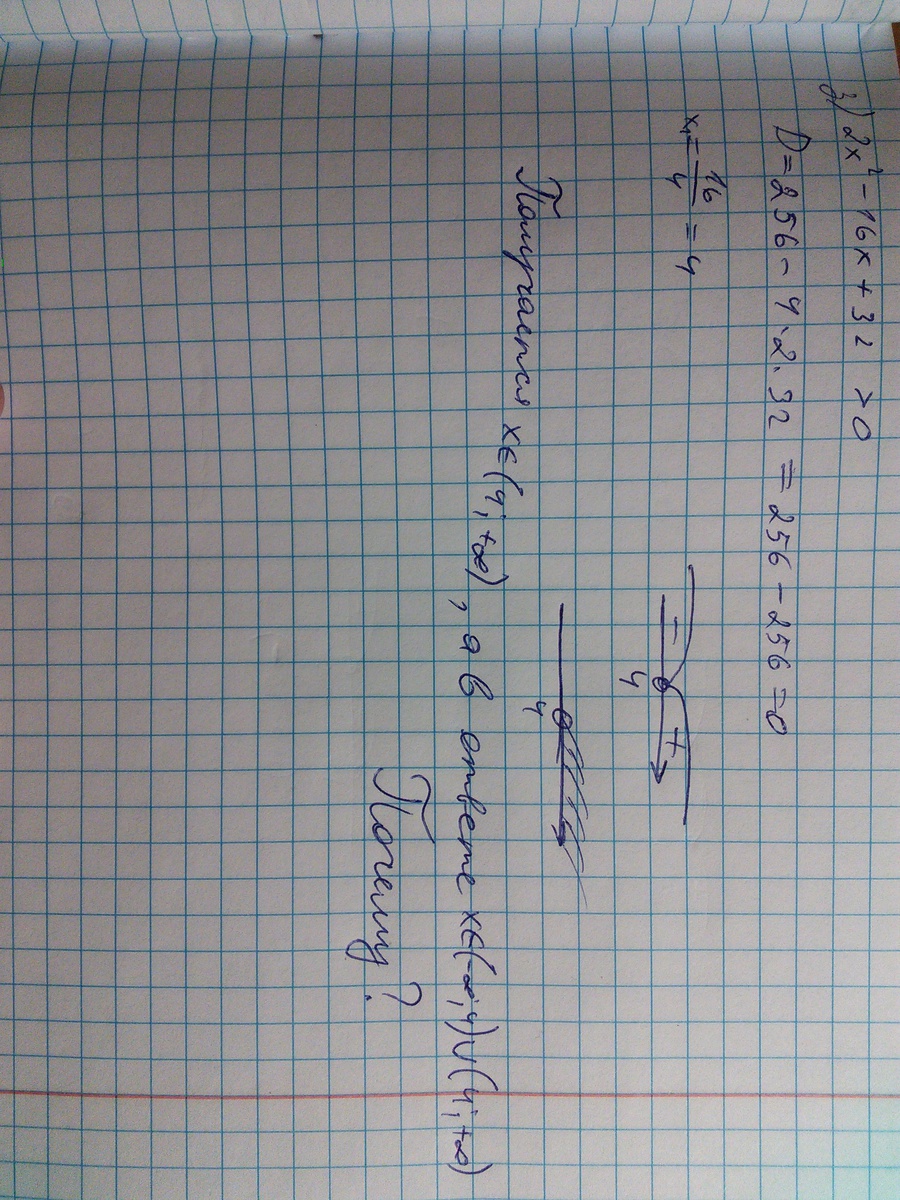 3) 2x² - 16x + 32 > 0
D = 256 - 4·2·32 = 256 - 256 = 0
x₁ = 16/4 = 4
- +
4
4
Получается x∈(4; +∞), а в ответе x∈(-∞; 4)∪(4; +∞)
Почему?